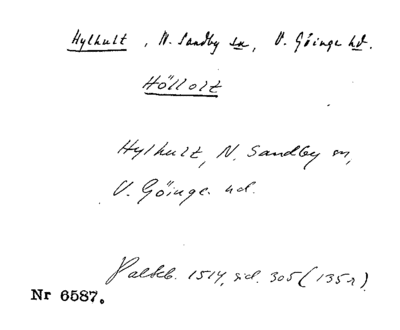 Hylhult, N. Sandby sn, V. Göinge hd.
Höllolt
Hylhult, N. Sandby sn,
V. Göinge hd.
1514, sid. 305 (135r).
Nr 6587.